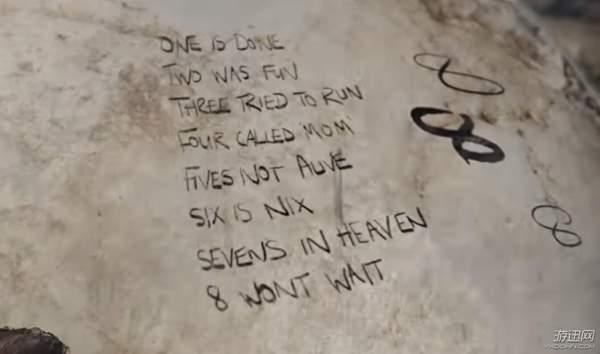 ONE IS DONE
TWO WAS FUN
THREE TRIED TO RUN
FOUR CALLED MOM
FIVES NOT ALIVE
SIX IS NIX
SEVENS IN HEAVEN
8 WONT WAIT
8
8
8
游迅网